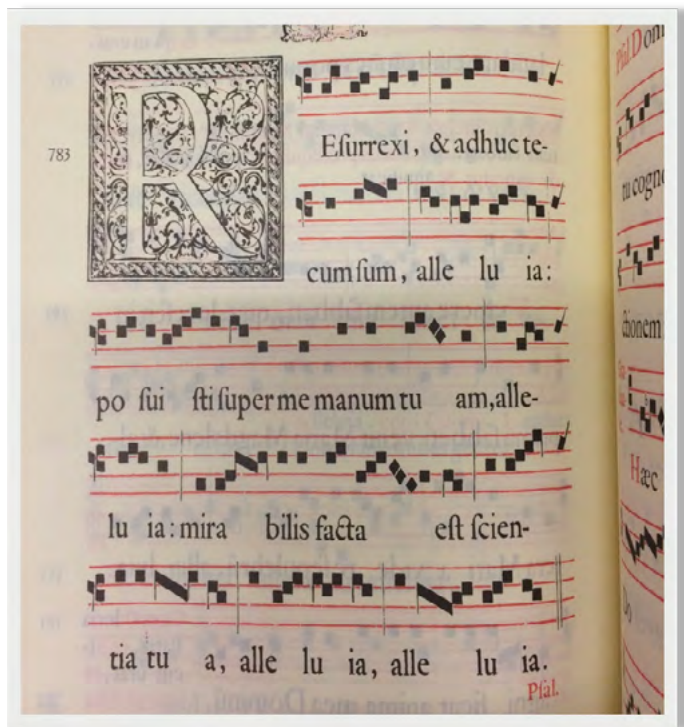 783
REſurrexi, & adhuc te-
cum ſum, alle lu ia:
po ſui ſti ſuper me manum tu am, alle-
lu ia: mira bilis facta eſt ſcien-
tia tu a, alle lu ia, alle lu ia.
Pſal.
Pſal. Domi
tu cogno
ctionem
Hæc